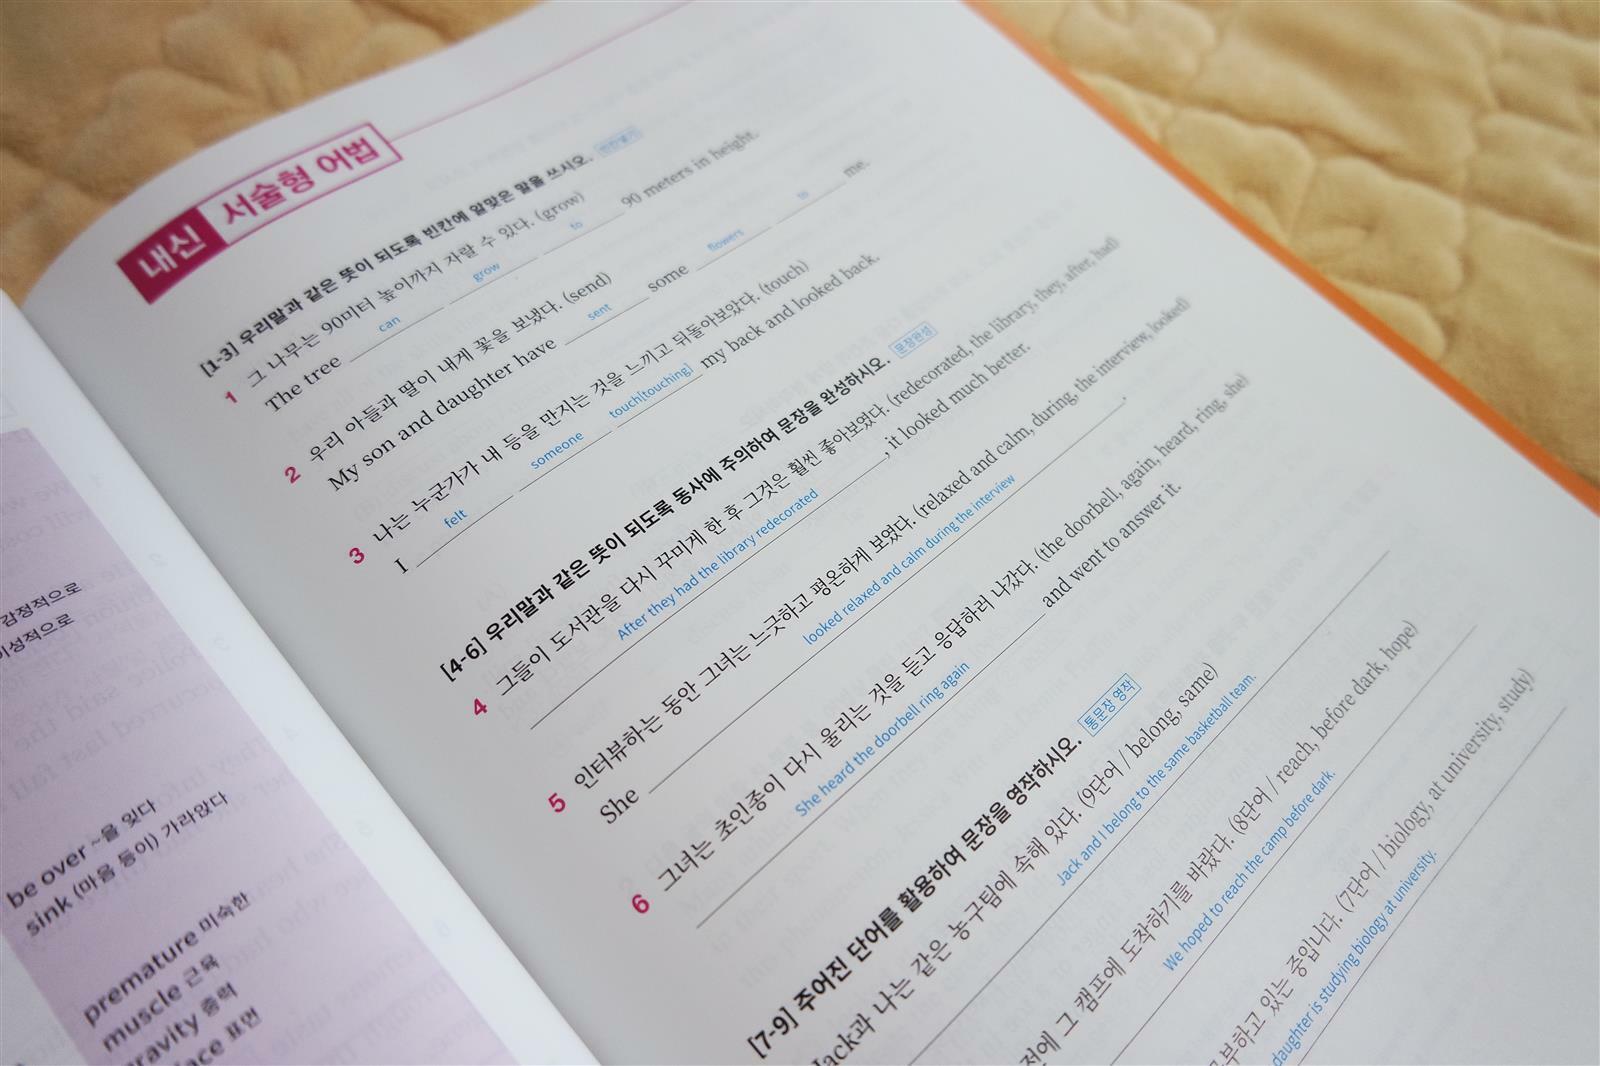 감정적으로
이성적으로
be over ~을 잊다
sink (마음 등이) 가라앉다
premature 미숙한
muscle 근육
gravity 중력
표면
내신 서술형 어법
[1-3] 우리말과 같은 뜻이 되도록 빈칸에 알맞은 말을 쓰시오. 빈칸쓰기
1 그 나무는 90미터 높이까지 자랄 수 있다. (grow)
The tree can grow to 90 meters in height.
2 우리 아들과 딸이 내게 꽃을 보냈다. (send)
My son and daughter have sent some flowers to me.
3 나는 누군가가 내 등을 만지는 것을 느끼고 뒤돌아보았다. (touch)
I felt someone touch[touching] my back and looked back.
[4-6] 우리말과 같은 뜻이 되도록 동사에 주의하여 문장을 완성하시오. 문장완성
4 그들이 도서관을 다시 꾸미게 한 후 그것은 훨씬 좋아보였다. (redecorated, the library, they, after, had)
After they had the library redecorated, it looked much better.
5 인터뷰하는 동안 그녀는 느긋하고 평온하게 보였다. (relaxed and calm, during, the interview, looked)
She looked relaxed and calm during the interview.
6 그녀는 초인종이 다시 울리는 것을 듣고 응답하러 나갔다. (the doorbell, again, heard, ring, she)
She heard the doorbell ring again and went to answer it.
[7-9] 주어진 단어를 활용하여 문장을 영작하시오. 통문장 영작
Jack과 나는 같은 농구팀에 속해 있다. (9단어 / belong, same)
Jack and I belong to the same basketball team.
전에 그 캠프에 도착하기를 바랐다. (8단어 / reach, before dark, hope)
We hoped to reach the camp before dark.
부하고 있는 중입니다. (7단어 / biology, at university, study)
daughter is studying biology at university.